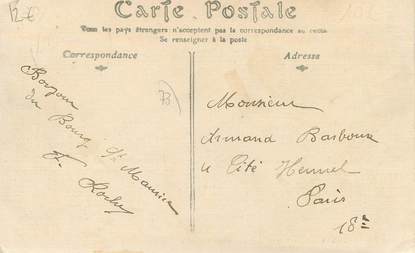 12€
Carte Postale
Tous les pays étrangers n'acceptent pas la correspondance au recto
Se renseigner à la poste
Correspondance
Adresse
73
Bonjour
du Bourg
St Maurice
F. Roche
Monsieur
Armand Barboux
Cité
Paris
18e